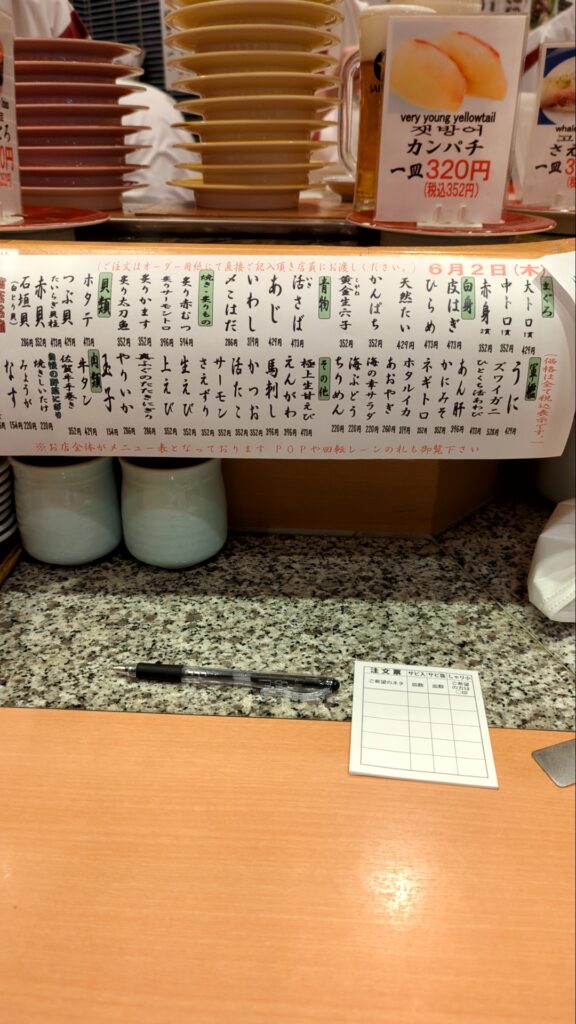 very young yellowtail
잿방어
カンパチ
一皿320円
(税込352円)
(ご注文はオーダー用紙にて直接ご記入頂き店員にお渡しください。)
6月2日(木)
まぐろ
大トロ 1貫 429円
中トロ 1貫
赤身 2貫 352円
白身
皮はぎ 473円
ひらめ 473円
天然たい 429円
かんぱち 352円
黄金生六子 352円
青物
活さば 473円
あじ 429円
いわし 319円
〆こはだ 286円
焼き・炙りもの
炙り赤むつ 594円
炙りサーモントロ
炙りかます 352円
炙り太刀魚 352円
貝類
ホタテ 473円
つぶ貝 429円
たいらぎ貝柱 473円
赤貝 352円
石垣貝
(価格は全て税込表示です。)
軍艦
うに
ズワイガニ 528円
ひとくち活あわび 473円
あん肝 396円
かにみそ 352円
ネギトロ 352円
ホタルイカ 319円
あおやぎ 352円
海の幸サラダ 220円
海ぶどう 220円
ちりめん 220円
その他
極上生甘えび 473円
えんがわ 396円
馬刺し 396円
かつお 352円
活たこ 352円
サーモン 352円
さえずり 352円
生えび 352円
上えび 352円
真ふぐのたたきにぎり 286円
やりいか 286円
玉子 154円
肉類
牛タン 352円
佐賀牛手巻き
焼きしいたけ 220円
みょうが 154円
なす 154円
※お店全体がメニュー表となっております POPや回転レーンの札も御覧下さい
注文票 サビ入 サビ抜 しゃり小
ご希望のネタ 皿数 皿数 ご希望の方は○印